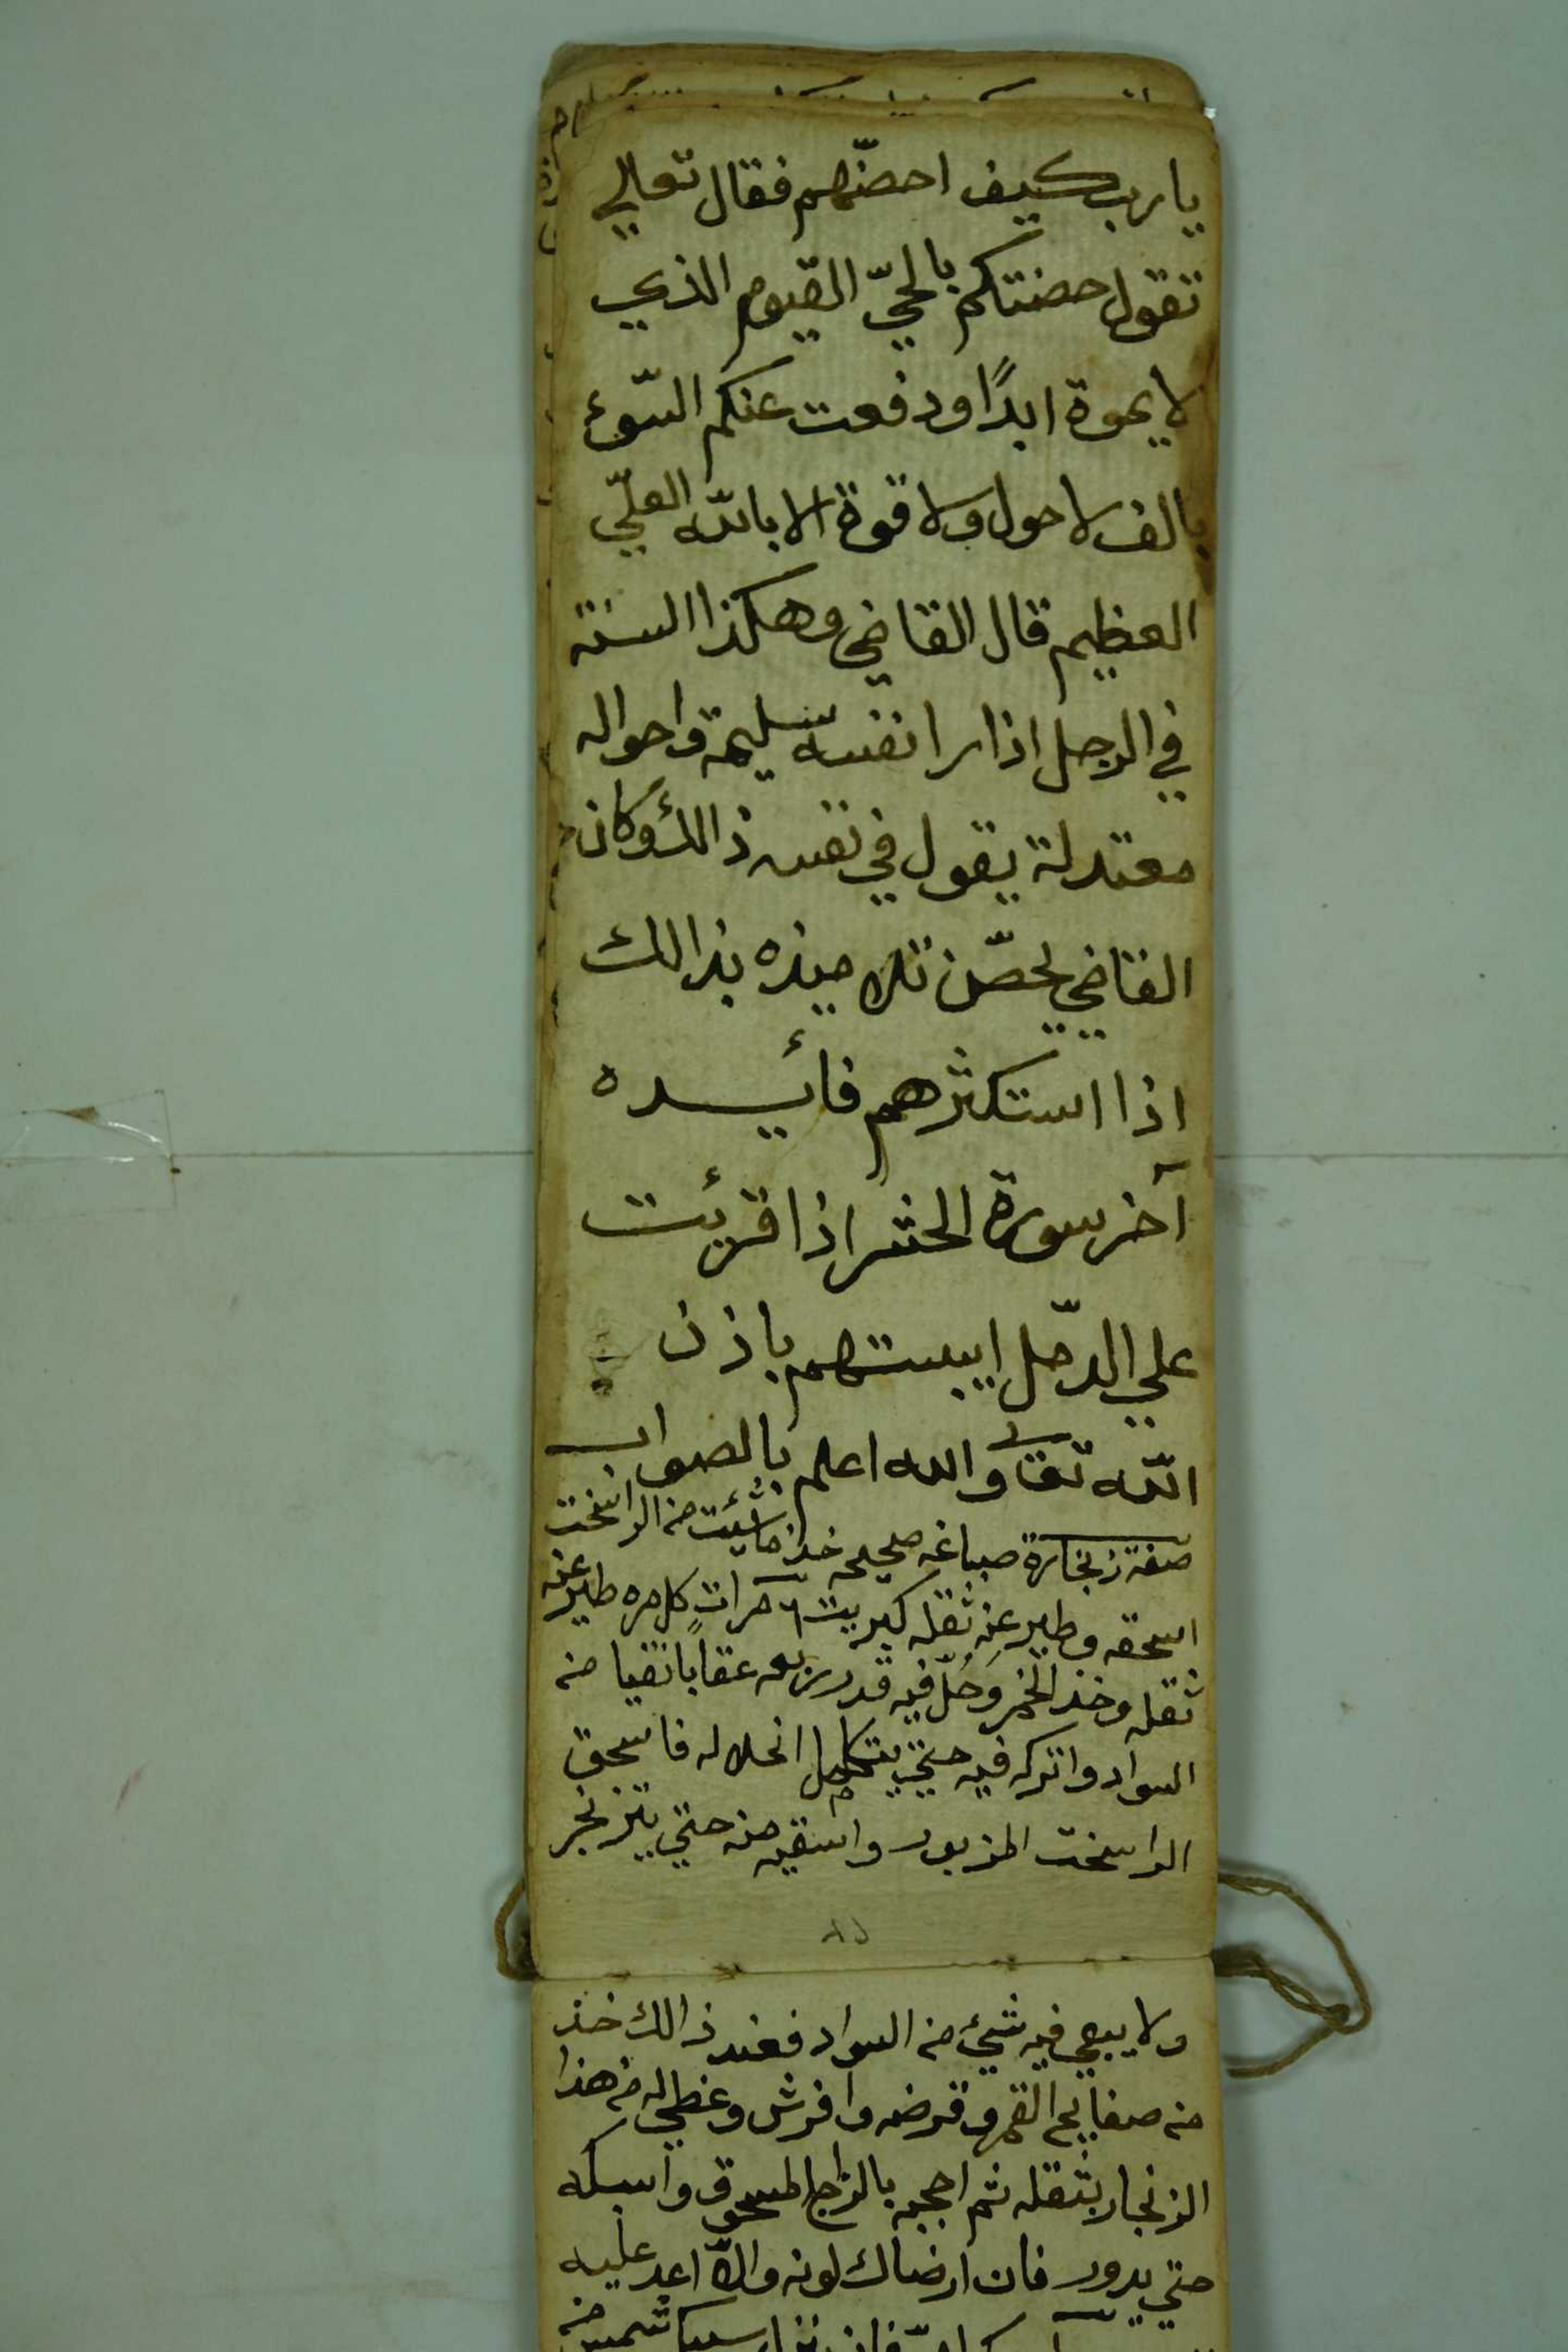 يا رب كيف احصّنهم فقال تعالي
تقول حصنتكم بالحيّ القيوم الذي
لا يموة ابدًا ودفعت عنكم السّوء
بالف لا حول ولا قوة الا بالله العليّ
العظيم قال القاضي وهكذا السنة
في الرجل اذا را نفسه سليمة واحواله
معتدلة يقول في نفسه ذالك وكان
القاضي يحصّن تلاميذه بذالك
اذا استكثرهم فائيده
آخر سورة الحشر اذا قرئت
علي الدمّل ايبستهم باذن
الله تعا والله اعلم بالصواب
صفة زنجارة صباغه صحيحه خذ ما شئت من الراسخت
اسحقه وطير عنه ثقله كبريت ٦ مرات كل مره طير عنه
ثقله وخذ الخمر وحُلّ فيه قدر ربعه عقابا نقيا من
السواد واتركه فيه حتي يتكامل انحلاله فاسحق
الراسخت المزبور واسقيه منه حتي يتزنجر
ولا يبقي فيه شيء من السواد فعند ذالك خذ
من صفايح القمر وقرضه وافرش وغطي له من هذا
الزنجار بثقله ثم احجبه بالزجاج المسحوق واسبكه
حتي يدور فان ارضاك لونه والّا اعد عليه